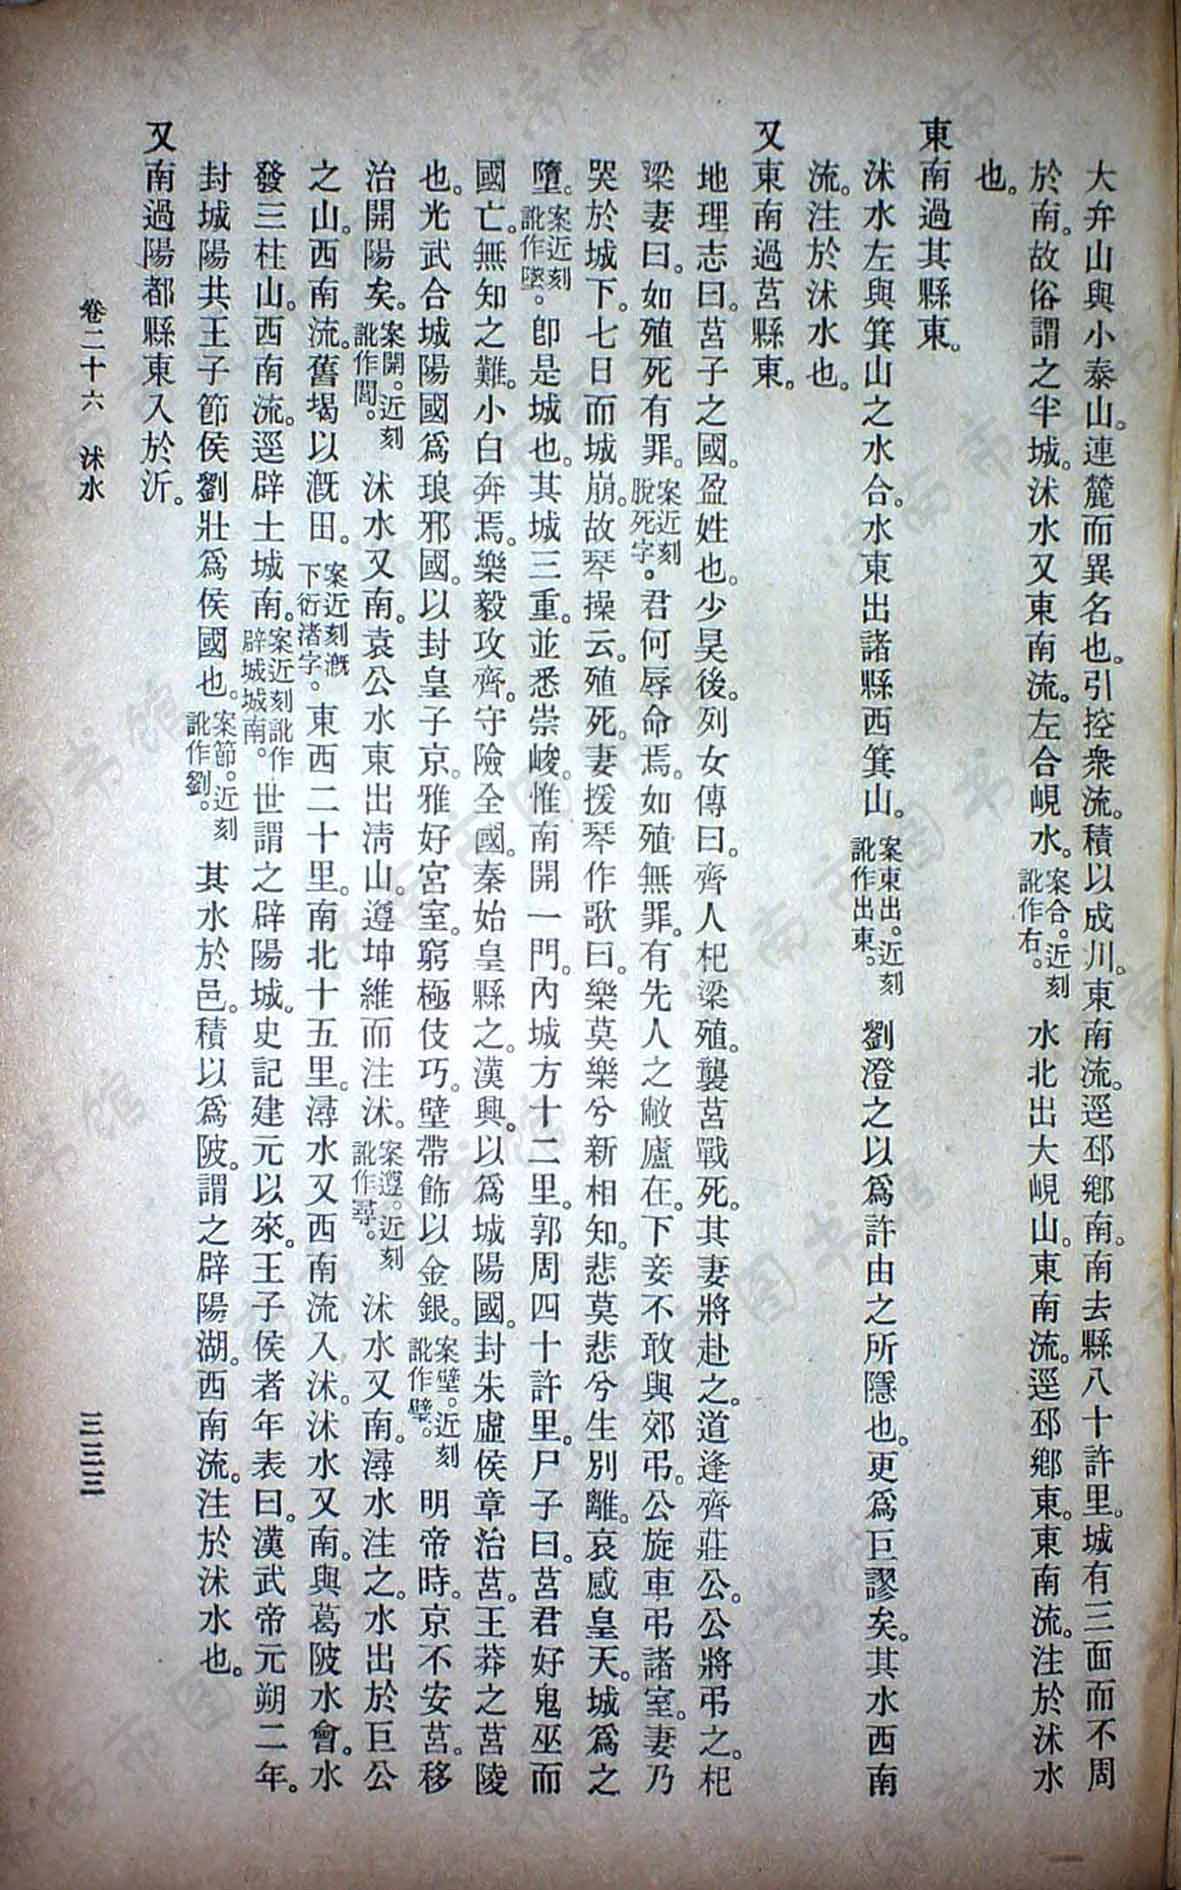 大弁山與小泰山。連麓而異名也。引控衆流。積以成川。東南流。逕邳鄉南。南去縣八十許里。城有三面而不周
於南。故俗謂之半城。沭水又東南流。左合峴水。案合。近刻訛作右。水北出大峴山。東南流。逕邳鄉東。東南流。注於沭水
也。
東南過其縣東。
沭水左與箕山之水合。水東出諸縣西箕山。案東出。近刻訛作出東。劉澄之以爲許由之所隱也。更爲巨謬矣。其水西南
流。注於沭水也。
又東南過莒縣東。
地理志曰。莒子之國。盈姓也。少昊後。列女傳曰。齊人杞梁殖。襲莒戰死。其妻將赴之。道逢齊莊公。公將弔之。杞
梁妻曰。如殖死有罪。案近刻脫死字。君何辱命焉。如殖無罪。有先人之敝廬在。下妾不敢與郊弔。公旋車弔諸室。妻乃
哭於城下。七日而城崩。故琴操云。殖死。妻援琴作歌曰。樂莫樂兮新相知。悲莫悲兮生別離。哀感皇天。城爲之
墮。案近刻訛作墜。卽是城也。其城三重。並悉崇峻。惟南開一門。內城方十二里。郭周四十許里。尸子曰。莒君好鬼巫而
國亡。無知之難。小白奔焉。樂毅攻齊。守險全國。秦始皇縣之。漢興。以爲城陽國。封朱虛侯章治莒。王莽之莒陵
也。光武合城陽國爲琅邪國。以封皇子京。雅好宮室。窮極伎巧。壁帶飾以金銀。案壁。近刻訛作璧。明帝時。京不安莒。移
治開陽矣。案開。近刻訛作閭。沭水又南。袁公水東出淸山。遵坤維而注沭。案遵。近刻訛作尋。沭水又南。潯水注之。水出於巨公
之山。西南流。舊堨以溉田。案近刻溉下衍渚字。東西二十里。南北十五里。潯水又西南流入沭。沭水又南。與葛陂水會。水
發三柱山。西南流。逕辟土城南。案近刻訛作辟城城南。世謂之辟陽城。史記建元以來。王子侯者年表曰。漢武帝元朔二年。
封城陽共王子節侯劉壯爲侯國也。案節。近刻訛作劉。其水於邑。積以爲陂。謂之辟陽湖。西南流。注於沭水也。
又南過陽都縣東入於沂。
卷二十六　沭水
三三三